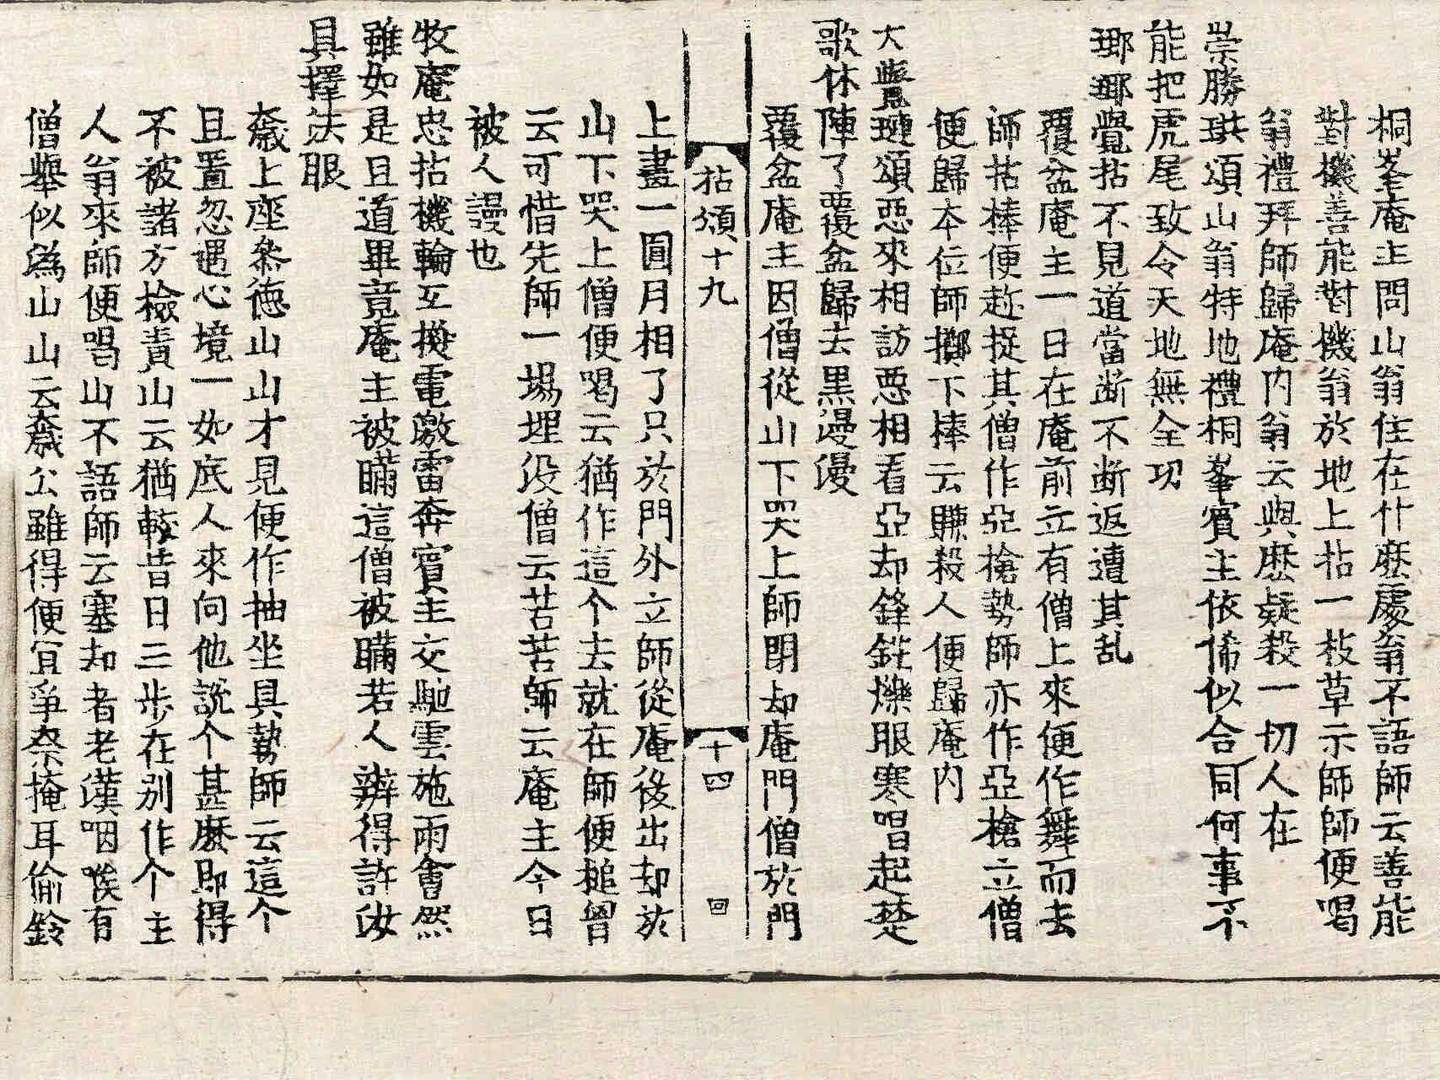 桐峯庵主問山翁住在什麽處翁不語師云善能
對機善能對機翁於地上拈一枝草示師師便喝
翁禮拜師歸庵內翁云與麽疑殺一切人在
崇勝珙頌山翁特地禮桐峯賓主依俙似合同何事不
能把虎尾致令天地無全功
瑯瑘覺拈不見道當断不断返遭其乱
覆盆庵主一日在庵前立有僧上來便作舞而去
師拈棒便趂捉其僧作亞槍勢師亦作亞槍立僧
便歸本位師擲下棒云賺殺人便歸庵內
大覺璉頌惡來相訪惡相看亞却鋒鋩爍眼寒唱起楚
歌休陣了覆盆歸去黒漫漫
覆盆庵主因僧從山下哭上師閉却庵門僧於門
拈頌十九
十四
囬
上畫一圓月相了只於門外立師從庵後出却於
山下哭上僧便喝云猶作這个去就在師便搥胷
云可惜先師一場埋没僧云苦苦師云庵主今日
被人謾也
牧庵忠拈機輪互換電激雷奔賓主交馳雲施雨會然
雖如是且道畢竟庵主被瞞這僧被瞞若人辨得許汝
具擇法眼
巚上座叅德山山才見便作抽坐具勢師云這个
且置忽遇心境一如底人來向他説个甚麽即得
不被諸方檢責山云猶較昔日三步在别作个主
人翁來師便喝山不語師云塞却者老漢咽喉有
僧舉似溈山山云巚公雖得便宜爭奈掩耳偷鈴